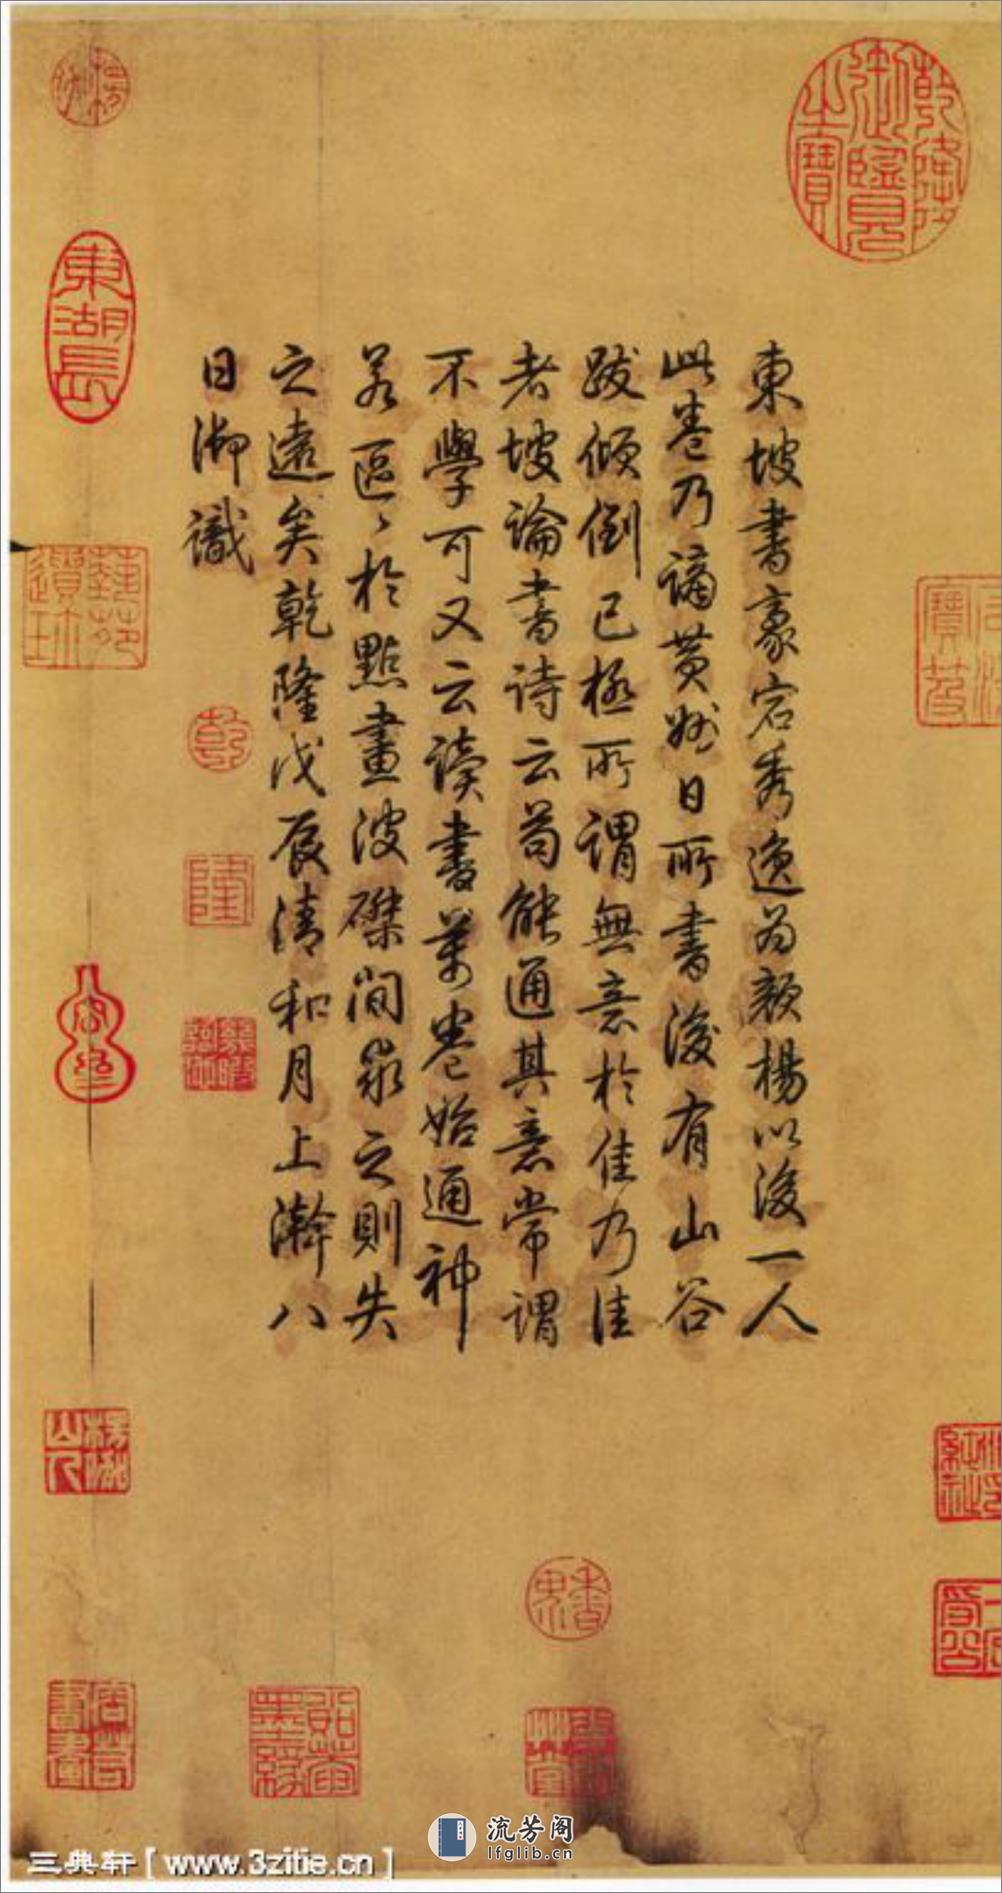 東坡書豪宕秀逸為顏楊以後一人
此卷乃謫黃州日所書後有山谷
跋傾倒已極所謂無意於佳乃佳
者坡論書詩云苟能通其意常謂
不學可又云讀書萬卷始通神
若區〻於點畫波磔間求之則失
之遠矣乾隆戊辰清和月上澣八
日御識
乾隆御覽之寶
東湖長
乾
隆
三典轩[www.3zitie.cn]
流芳阁
lfglib.cn